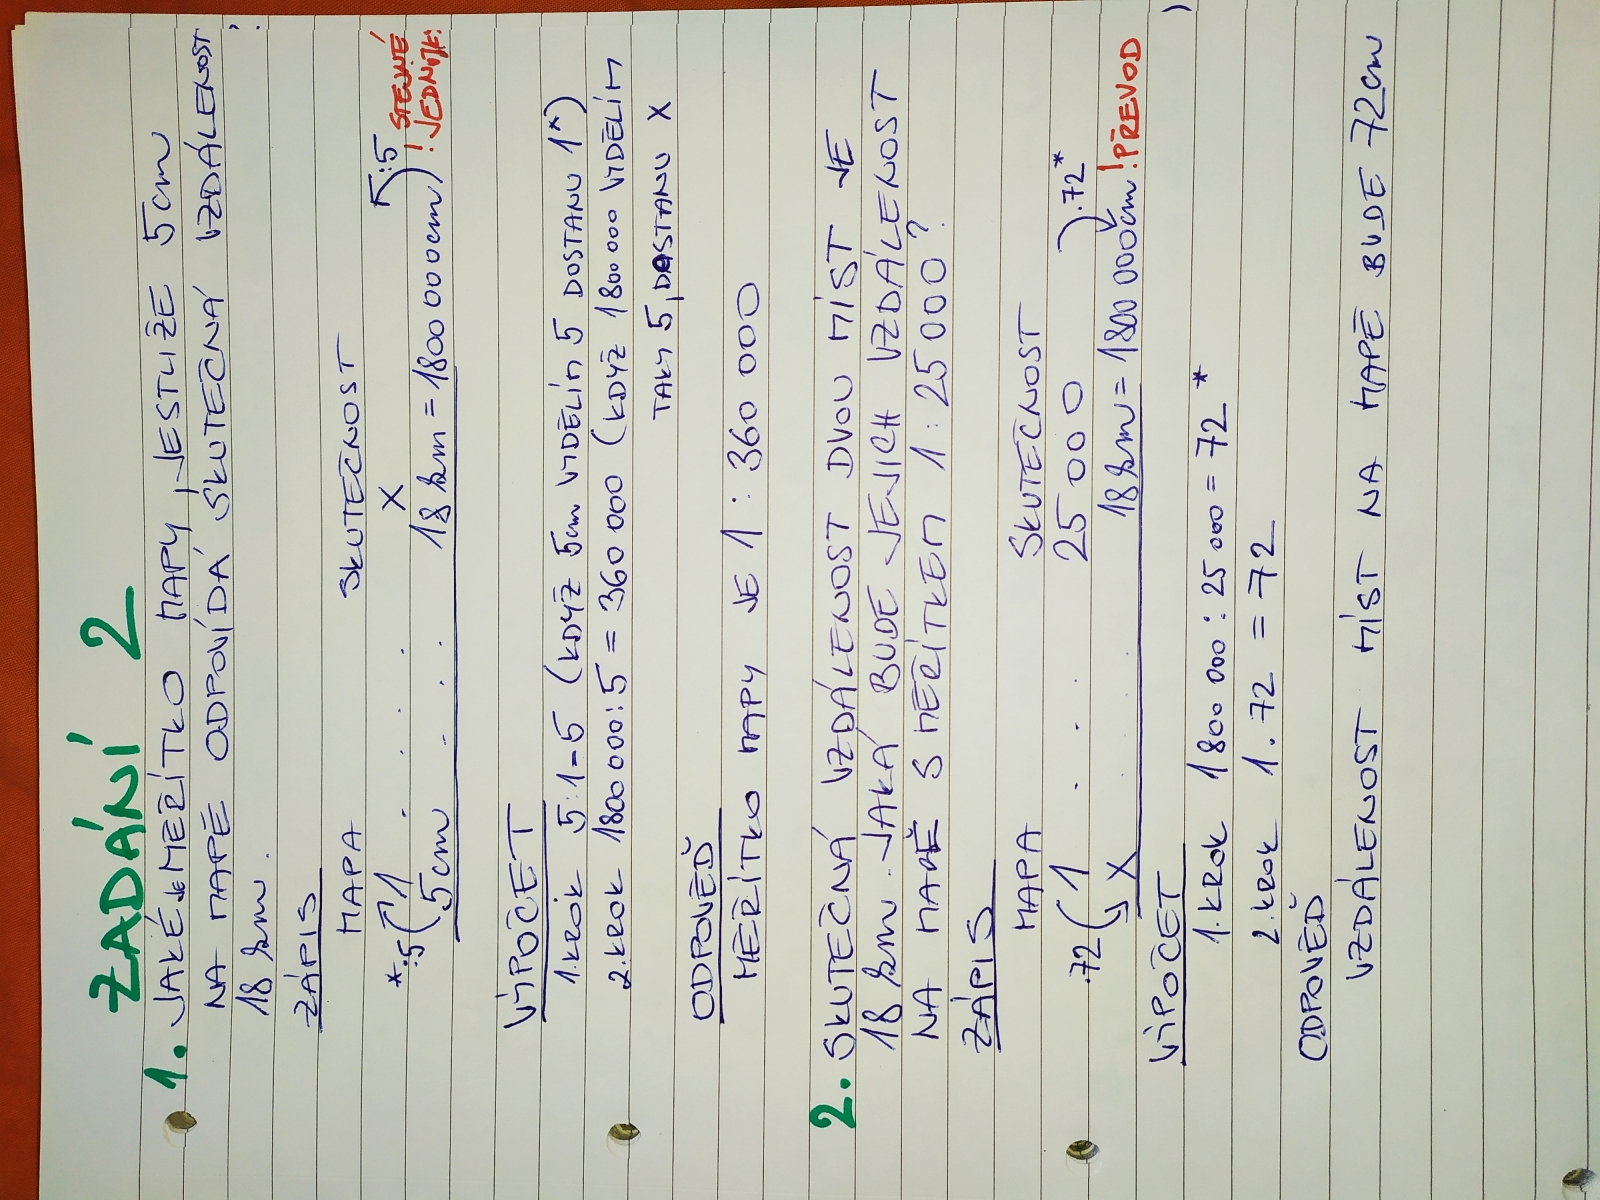 ZADÁNÍ 2
1. JAKÉ JE MĚŘÍTKO MAPY, JESTLIŽE 5cm
NA MAPĚ ODPOVÍDÁ SKUTEČNÁ VZDÁLENOST
18 km.
ZÁPIS
MAPA SKUTEČNOST
*:5 1 . . . . X :5 ! STEJNÉ
5cm . . . 18 km = 1800 000cm JEDNOTK!
VÝPOČET
1.KROK 5:1=5 (KDYŽ 5cm VYDĚLÍM 5 DOSTANU 1*)
2.KROK 1800000:5 = 360 000 (KDYŽ 1800 000 VYDĚLÍM
TAKY 5, DOSTANU X
ODPOVĚĎ
MĚŘÍTKO MAPY JE 1 : 360 000
2. SKUTEČNÁ VZDÁLENOST DVOU MÍST JE
18 km. JAKÁ BUDE JEJICH VZDÁLENOST
NA MAPĚ S MĚŘÍTKEM 1 : 25 000?
ZÁPIS
MAPA SKUTEČNOST
.72 1 . . . 25 000 .72*
X . . 18 km = 1800 000cm !PŘEVOD
VÝPOČET
1.KROK 1800 000 : 25 000 = 72 *
2.KROK 1 . 72 = 72
ODPOVĚĎ
VZDÁLENOST MÍST NA MAPĚ BUDE 72cm